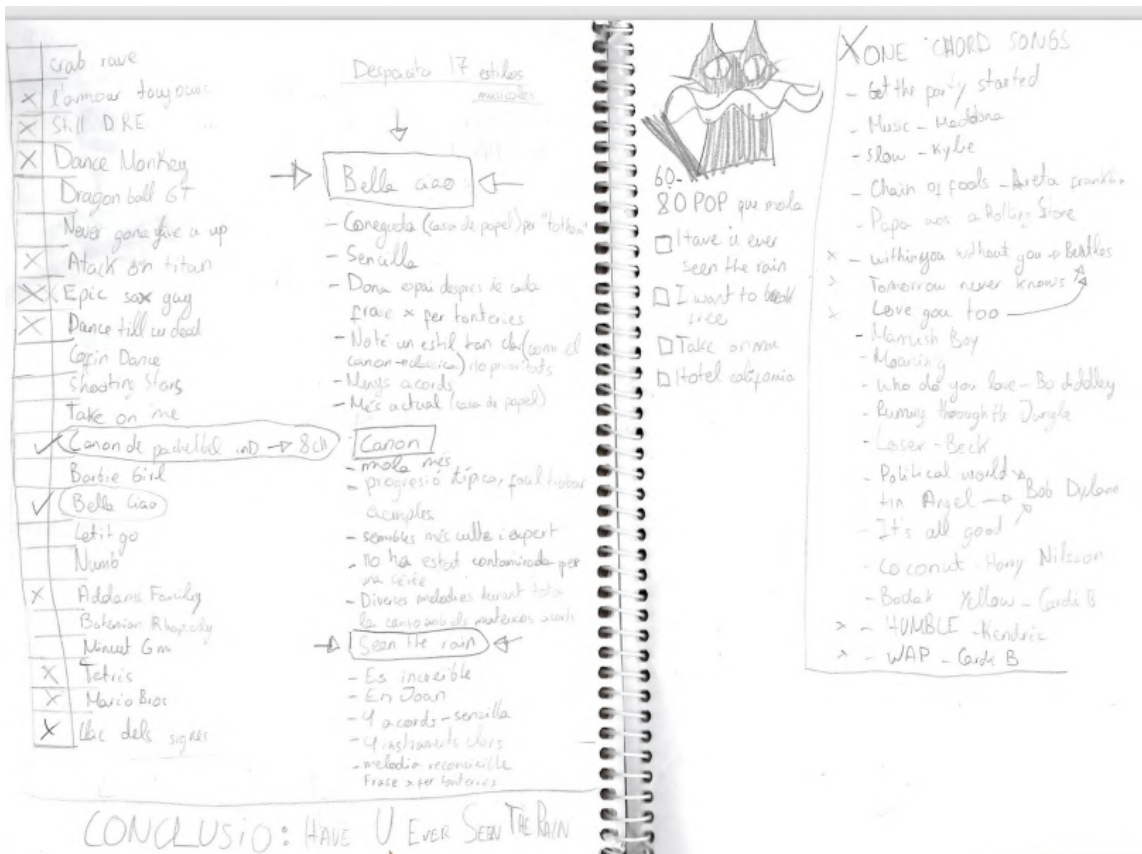 crab rave
l'amour toujours
Still DRE
Dance Monkey
Dragon ball GT
Never gone give u up
Atack on titan
Epic sax guy
Dance till u dead
Cofin Dance
Shooting Stars
Take on me
Canon de pachelbel inD → 8 ch
Barbie Girl
Bella Ciao
Let it go
Numb
Addams Family
Bohemian Rhapsody
Minuet Gm
Tetris
Mario Bros
Llac dels signes
Despacito 17 estilos
musicales
Bella ciao
- Coneguda (casa de papel) per "tothom"
- Sencilla
- Dona espai despres de cada
frase x per tonteries
- No té un estil tan clar (com el
canon → clàssica) no prioritats
- Menys acords
- Més actual (casa de papel)
Canon
- mola més
- progresió típica, facil trobar
exemples
- sembles més culte i expert
- no ha estat contaminada per
una série
- Diverses melodies durant tota
la canço amb els mateixos acords
Seen the rain
- Es increible
- En Joan
- 4 acords - senzilla
- 4 instruments clars
- melodia reconeixible
Frase x fer tonteries
CONCLUSIO: HAVE U EVER SEEN THE RAIN
60-
80 POP que mola
Have u ever
seen the rain
I want to break
free
Take on me
Hotel california
X ONE CHORD SONGS
- Get the party started
- Music - Maddona
- Slow - Kylie
- Chain of fools - Areta franklin
- Papa was a Rolling Stone
x - within you without you → Beatles
Tomorrow never knows
Love you too
- Mannish Boy
- Moaning
- Who do you love - Bo diddley
- Running through the Jungle
- Loser - Beck
- Political world
tin Angel → Bob Dylann
- It's all good
- Coconut - Harry Nilsson
- Bodak Yellow - Cardi B
- HUMBLE - Kendric
- WAP - Cardi B